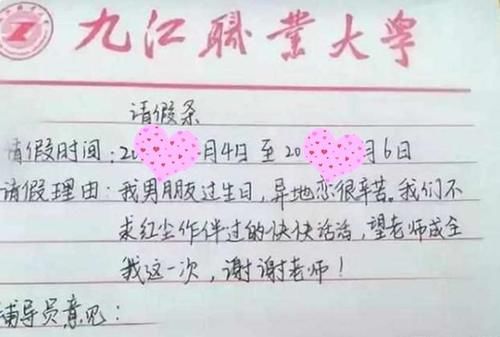 九江职业大学
请假条
请假时间：20 月4日至20 月6日
请假理由：我男朋友过生日，异地恋很辛苦。我们不
求红尘作伴过的快快活活，望老师成全
我这一次，谢谢老师！
辅导员意见：